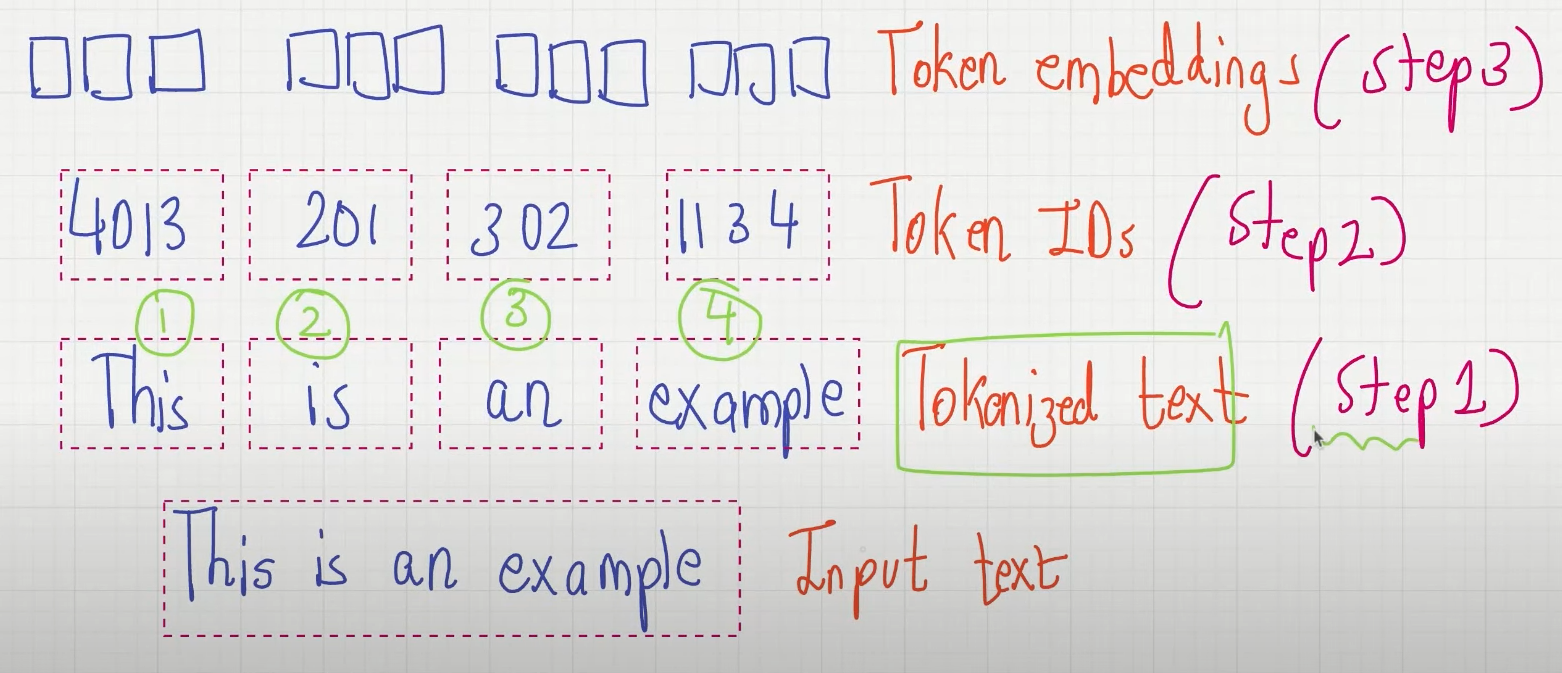 Token embeddings (Step 3)
4013 201 302 1134 Token IDs (Step 2)
1 2 3 4
This is an example Tokenized text (Step 1)
This is an example Input text